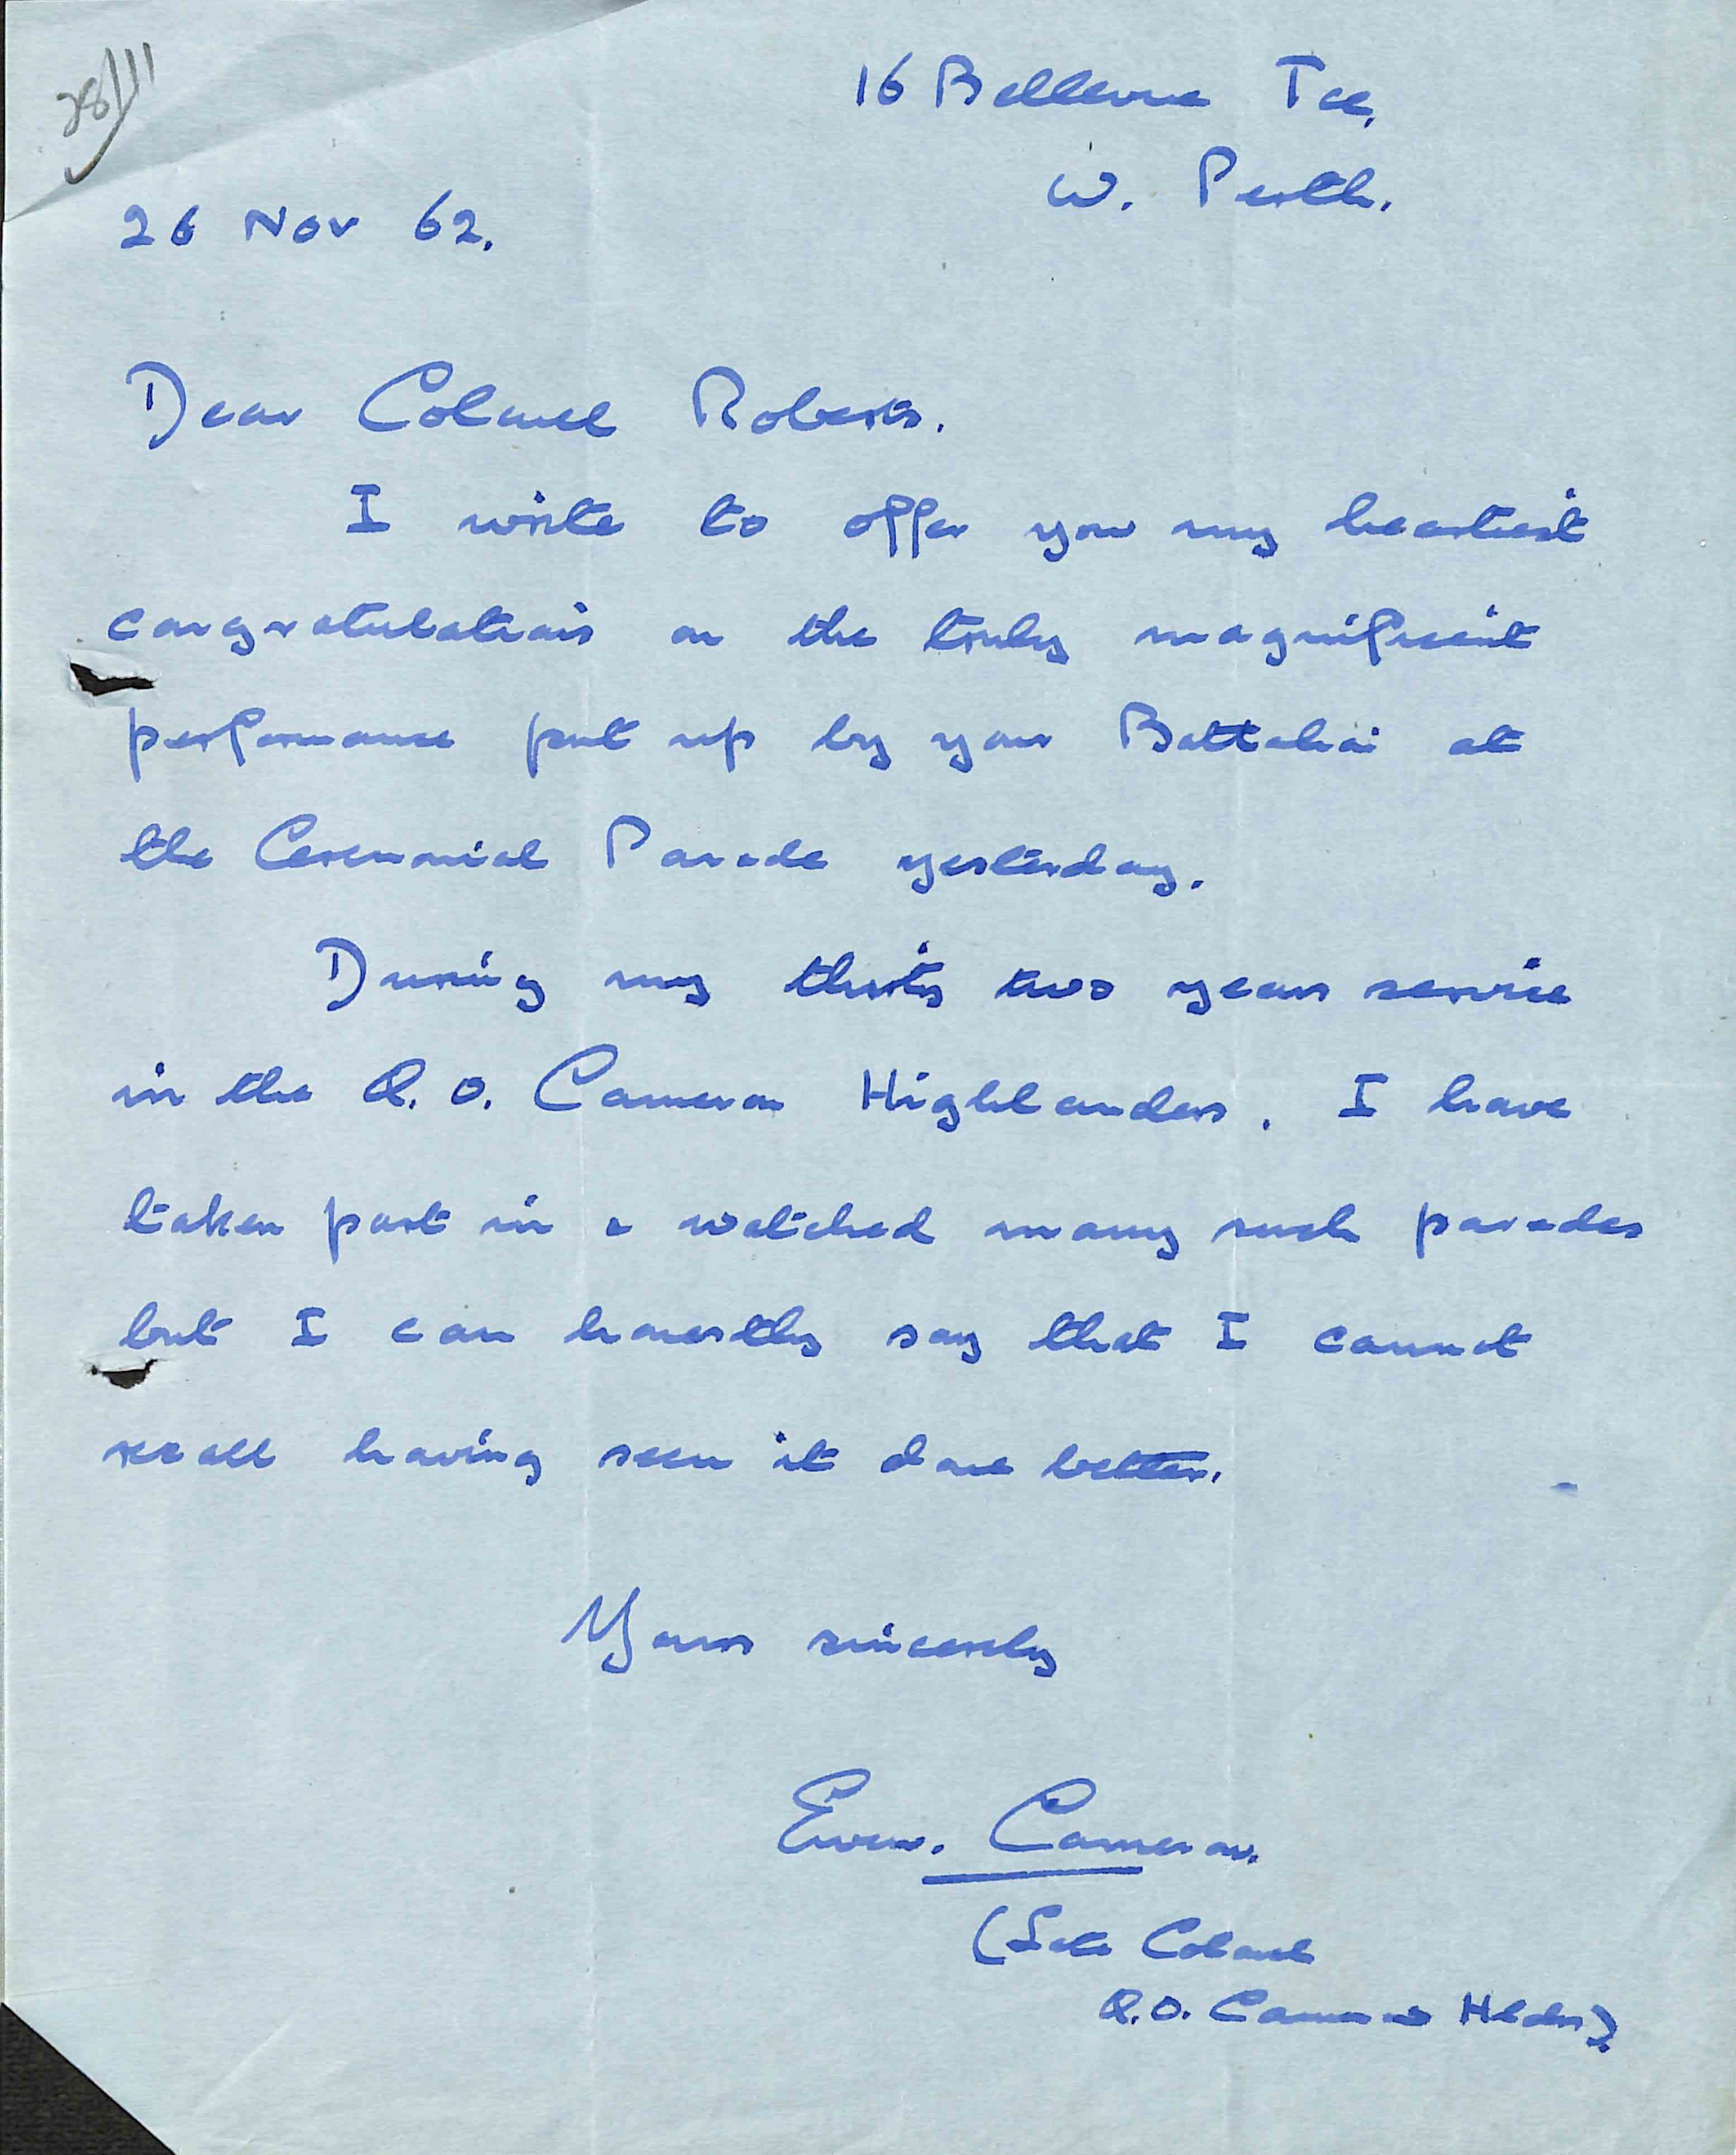 28/11
16 Bellevue Tce,
W. Perth.
26 Nov 62.
Dear Colonel Roberts.
I write to offer you my heartiest
congratulations on the truly magnificent
performance put up by your Battalion at
the Ceremonial Parade yesterday.
During my thirty two years service
in the Q.O. Cameron Highlanders. I have
taken part in & watched many such parades
but I can honestly say that I cannot
recall having seen it done better.
Yours sincerely
Ewen. Cameron.
(Late Colonel
Q.O. Cameron Hldrs).